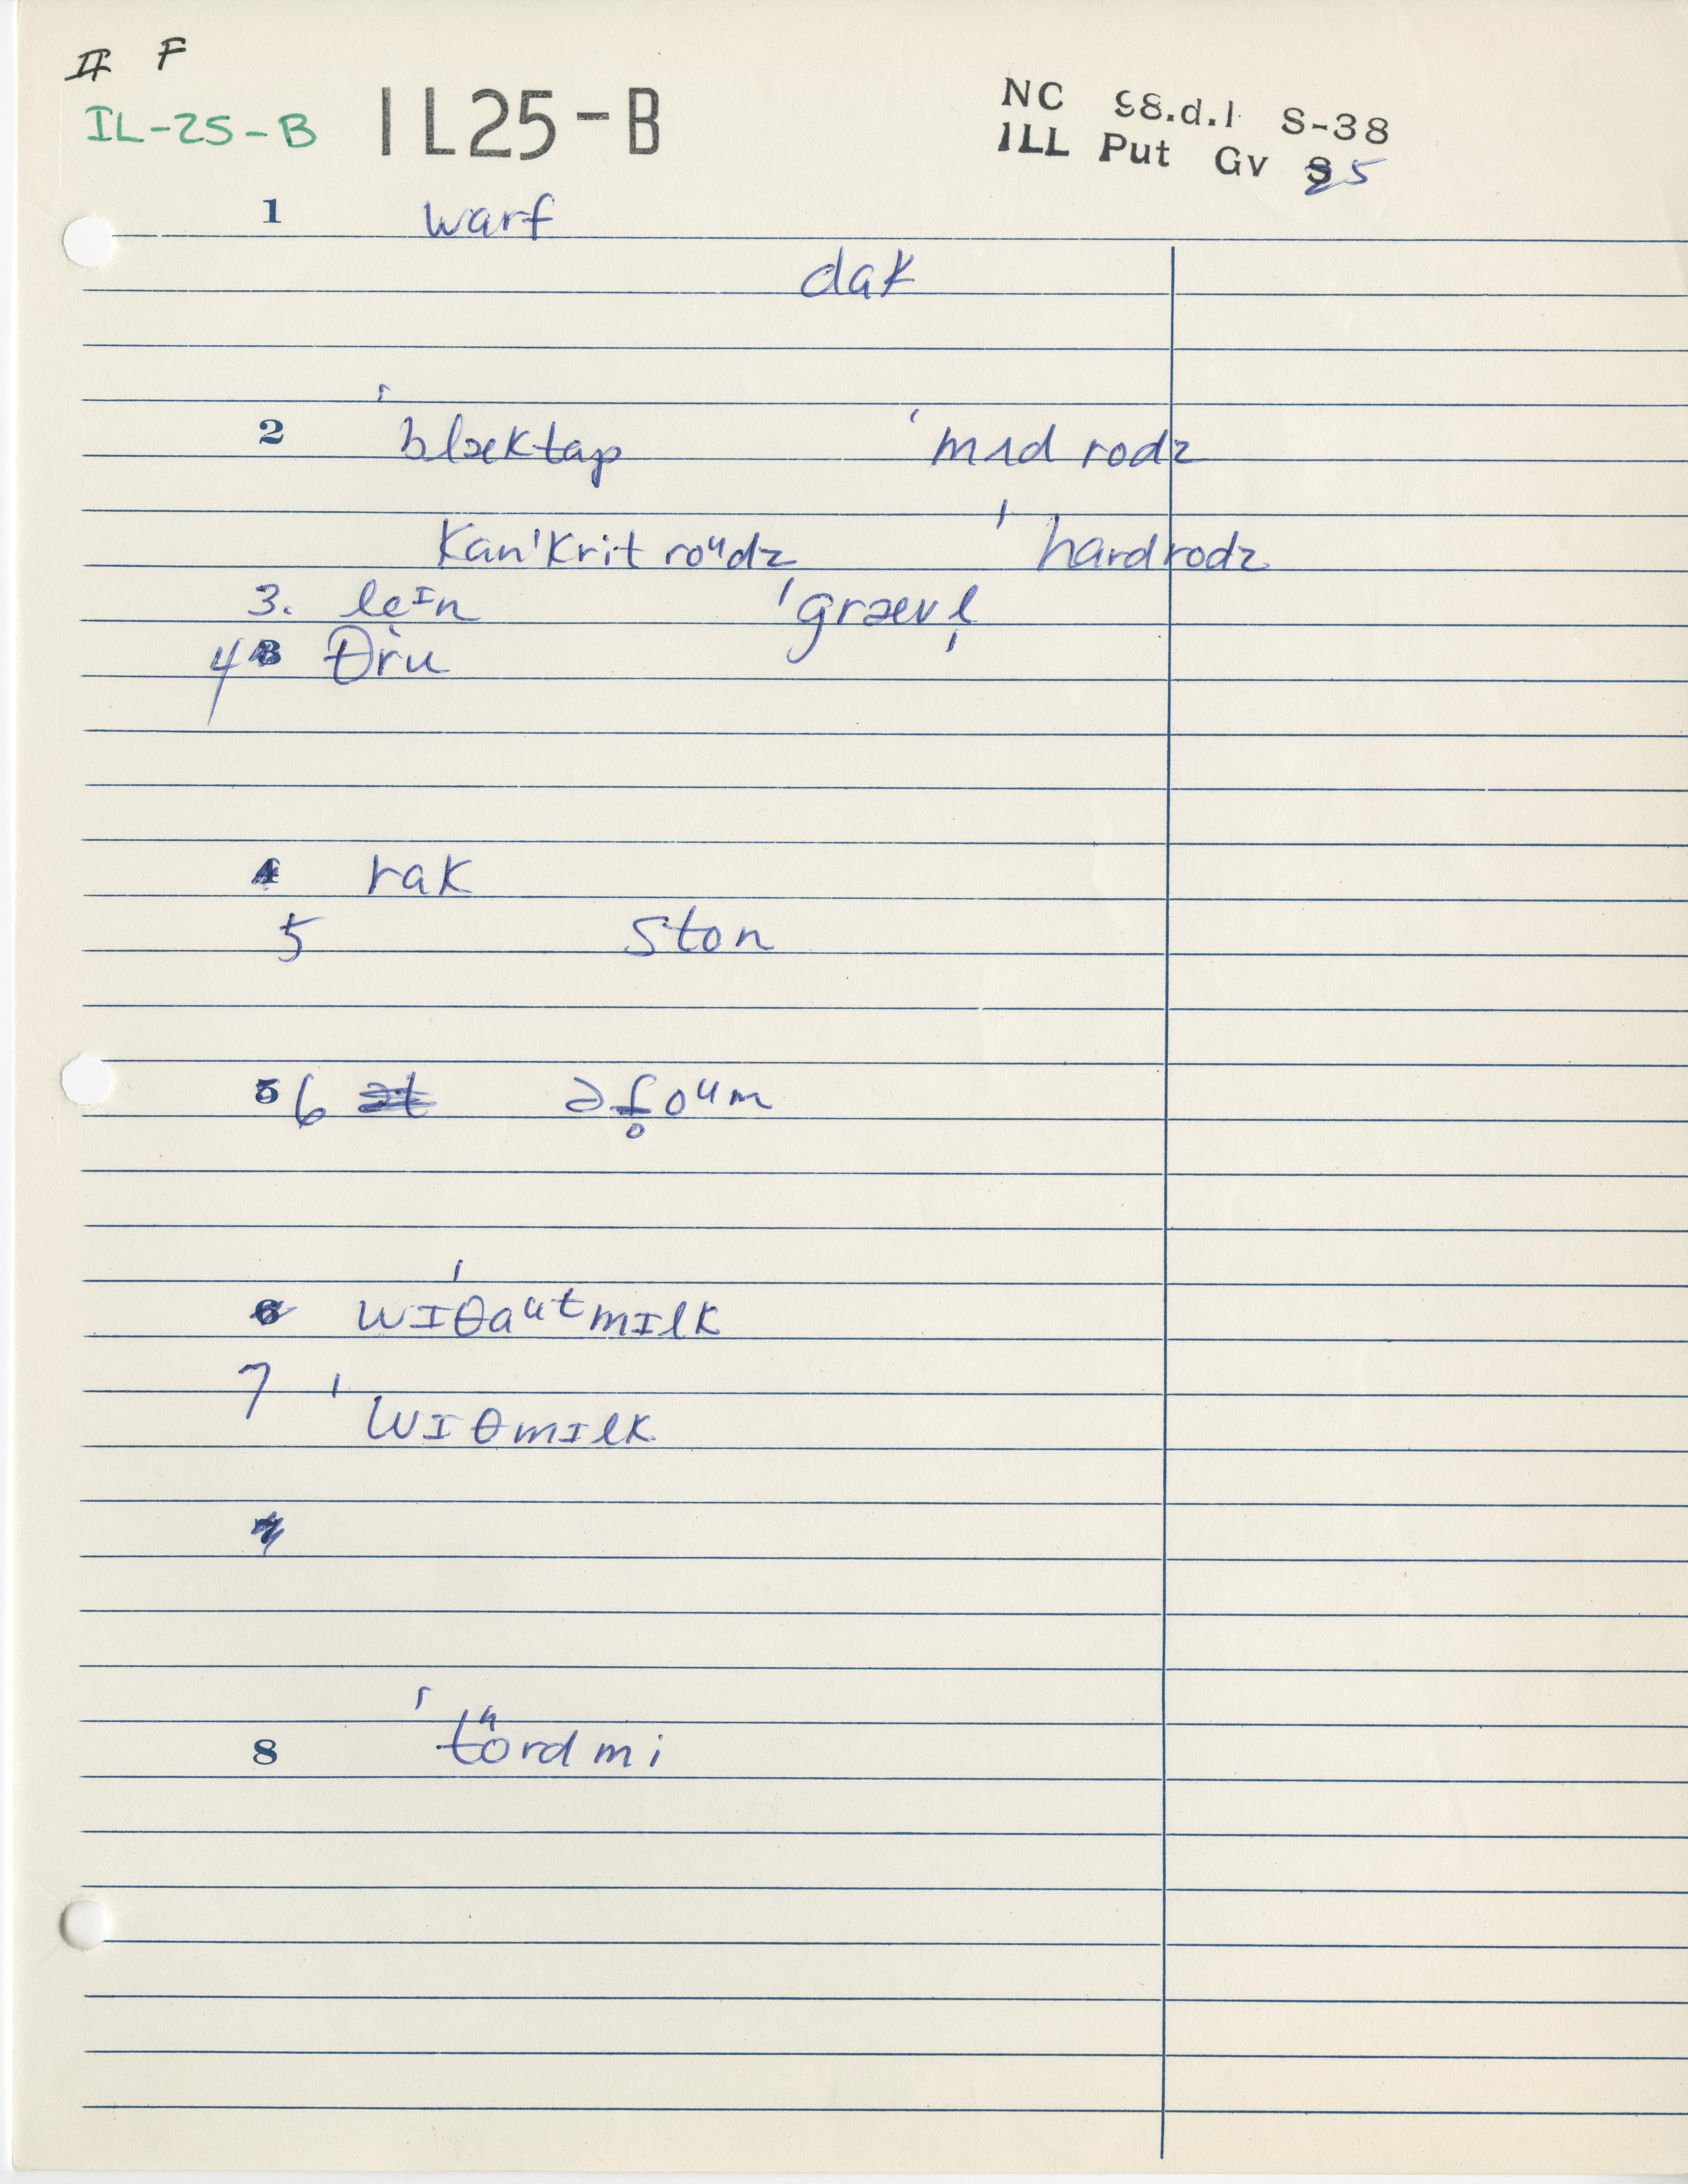 II F
IL-25-B IL25-B NC 98.d.1 S-38
ILL Put Gv 5
1 warf
dak
2 ˈblæktap ˈmʌd rodz
kanˈkrit roᵘdz ˈhardrodz
3. leᴵn ˈgrævl̩
4 θru
rak
5 ston
6 əfoᵘm
ˈwɪθaᵘtmɪlk
7 ˈwɪθmɪlk
8 ˈtoᵘrdmi